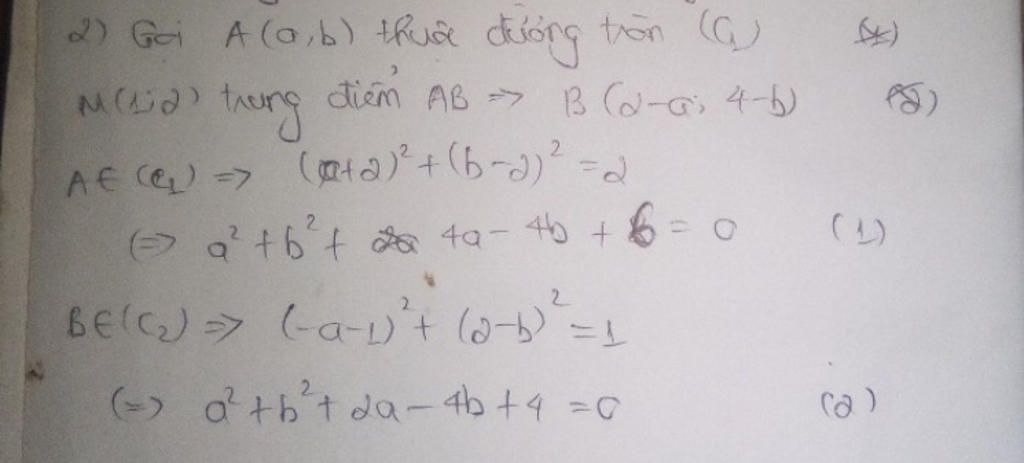 2) Gọi A(a,b) thuộc đường tròn (C1)
M(1;2) trung điểm AB => B(2-a; 4-b)
A∈(C1) => (a+2)² + (b-2)² = 2
<=> a² + b² + 4a - 4b + 6 = 0 (1)
B∈(C2) => (-a-1)² + (2-b)² = 1
<=> a² + b² + 2a - 4b + 4 = 0 (2)